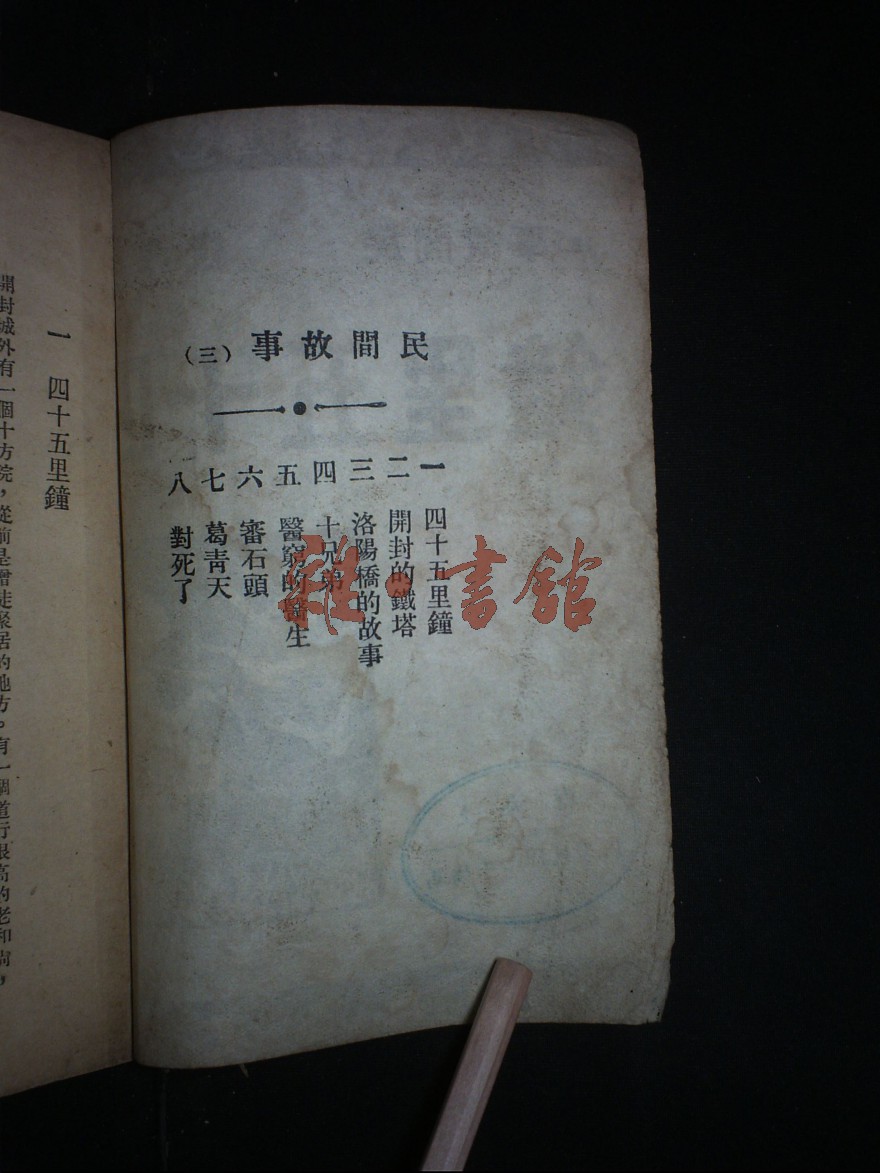 民間故事（三）
一 四十五里鐘
二 開封的鐵塔
三 洛陽橋的故事
四 十兄弟
五 醫窮的醫生
六 審石頭
七 葛青天
八 對死了
雜·書館
一 四十五里鐘
開封城外有一個十方院，從前是僧徒聚居的地方。有一個道行很高的老和尚，